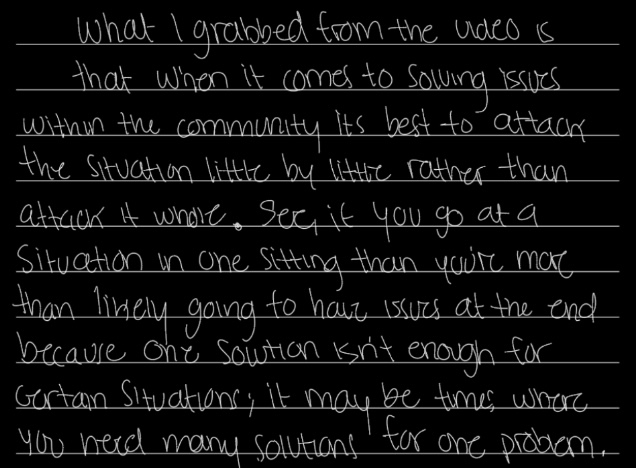 What I grabbed from the video is
that when it comes to solving issues
within the community its best to attack
the situation little by little rather than
attack it whole. See, if you go at a
situation in one sitting than you're more
than likely going to have issues at the end
because one solution isn't enough for
certain situations; it may be times where
you need many solutions for one problem.